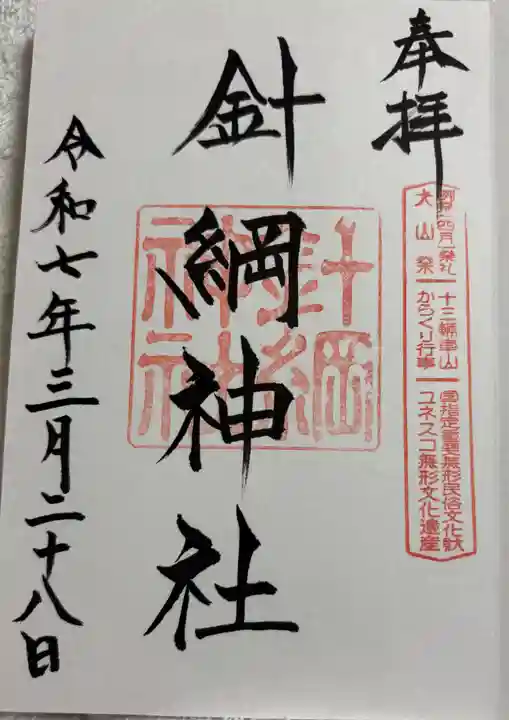 奉拝
例祭 四月祭礼
犬山祭
十三輛車山
からくり行事
国指定重要無形民俗文化財
ユネスコ無形文化遺産
針綱神社
針綱
神社
令和七年三月二十八日